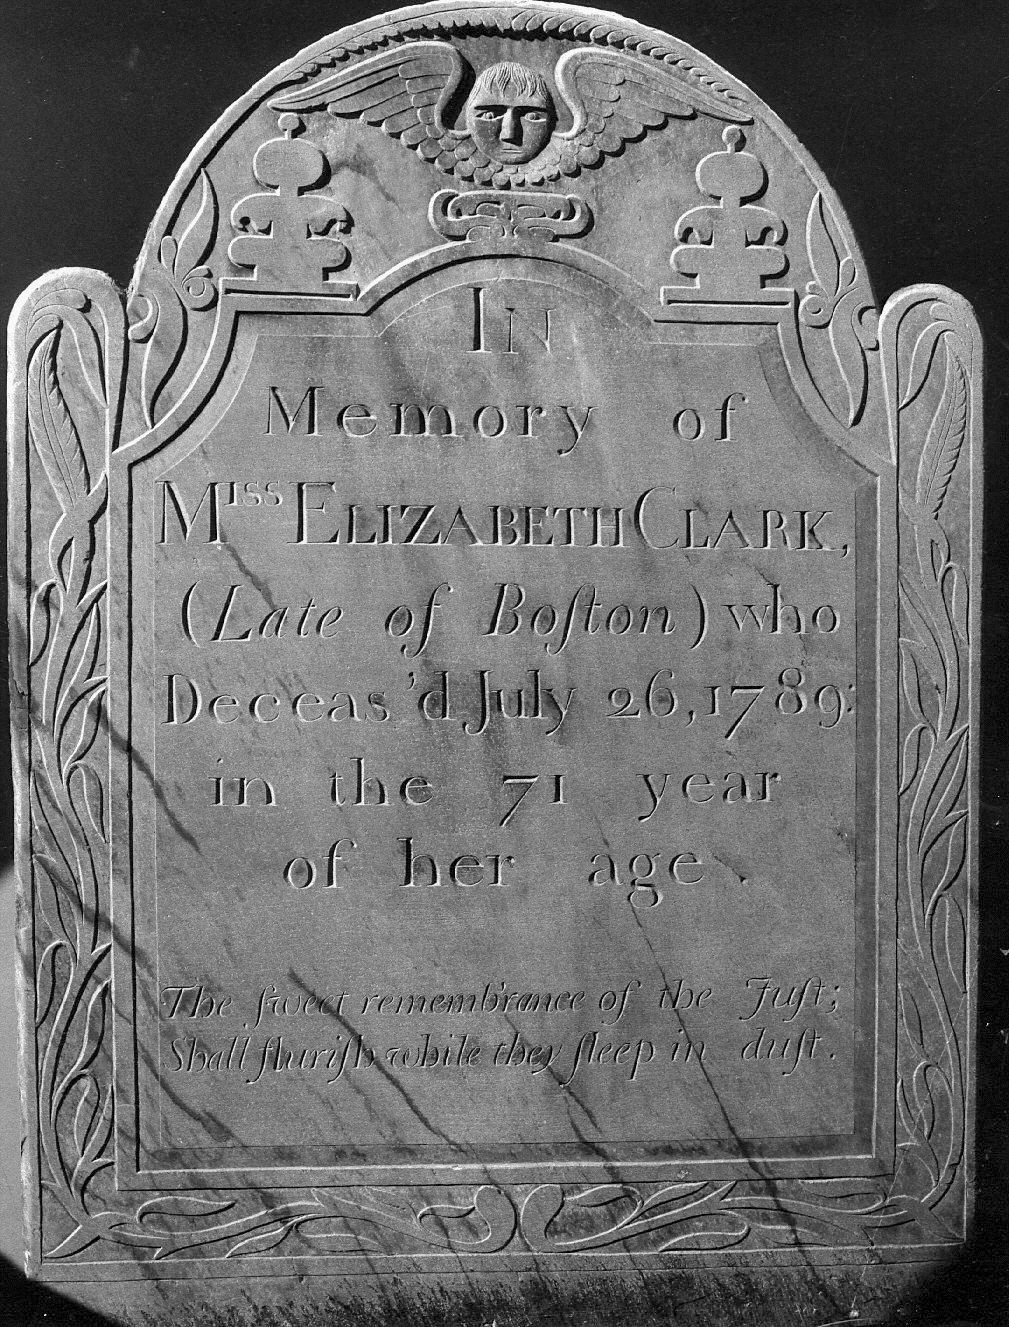 IN
Memory of
Miss ELIZABETH CLARK,
(Late of Boſton) who
Deceas'd July 26, 1789:
in the 71 year
of her age.
The ſweet remembrance of the Juſt;
Shall fluriſh while they ſleep in duſt.